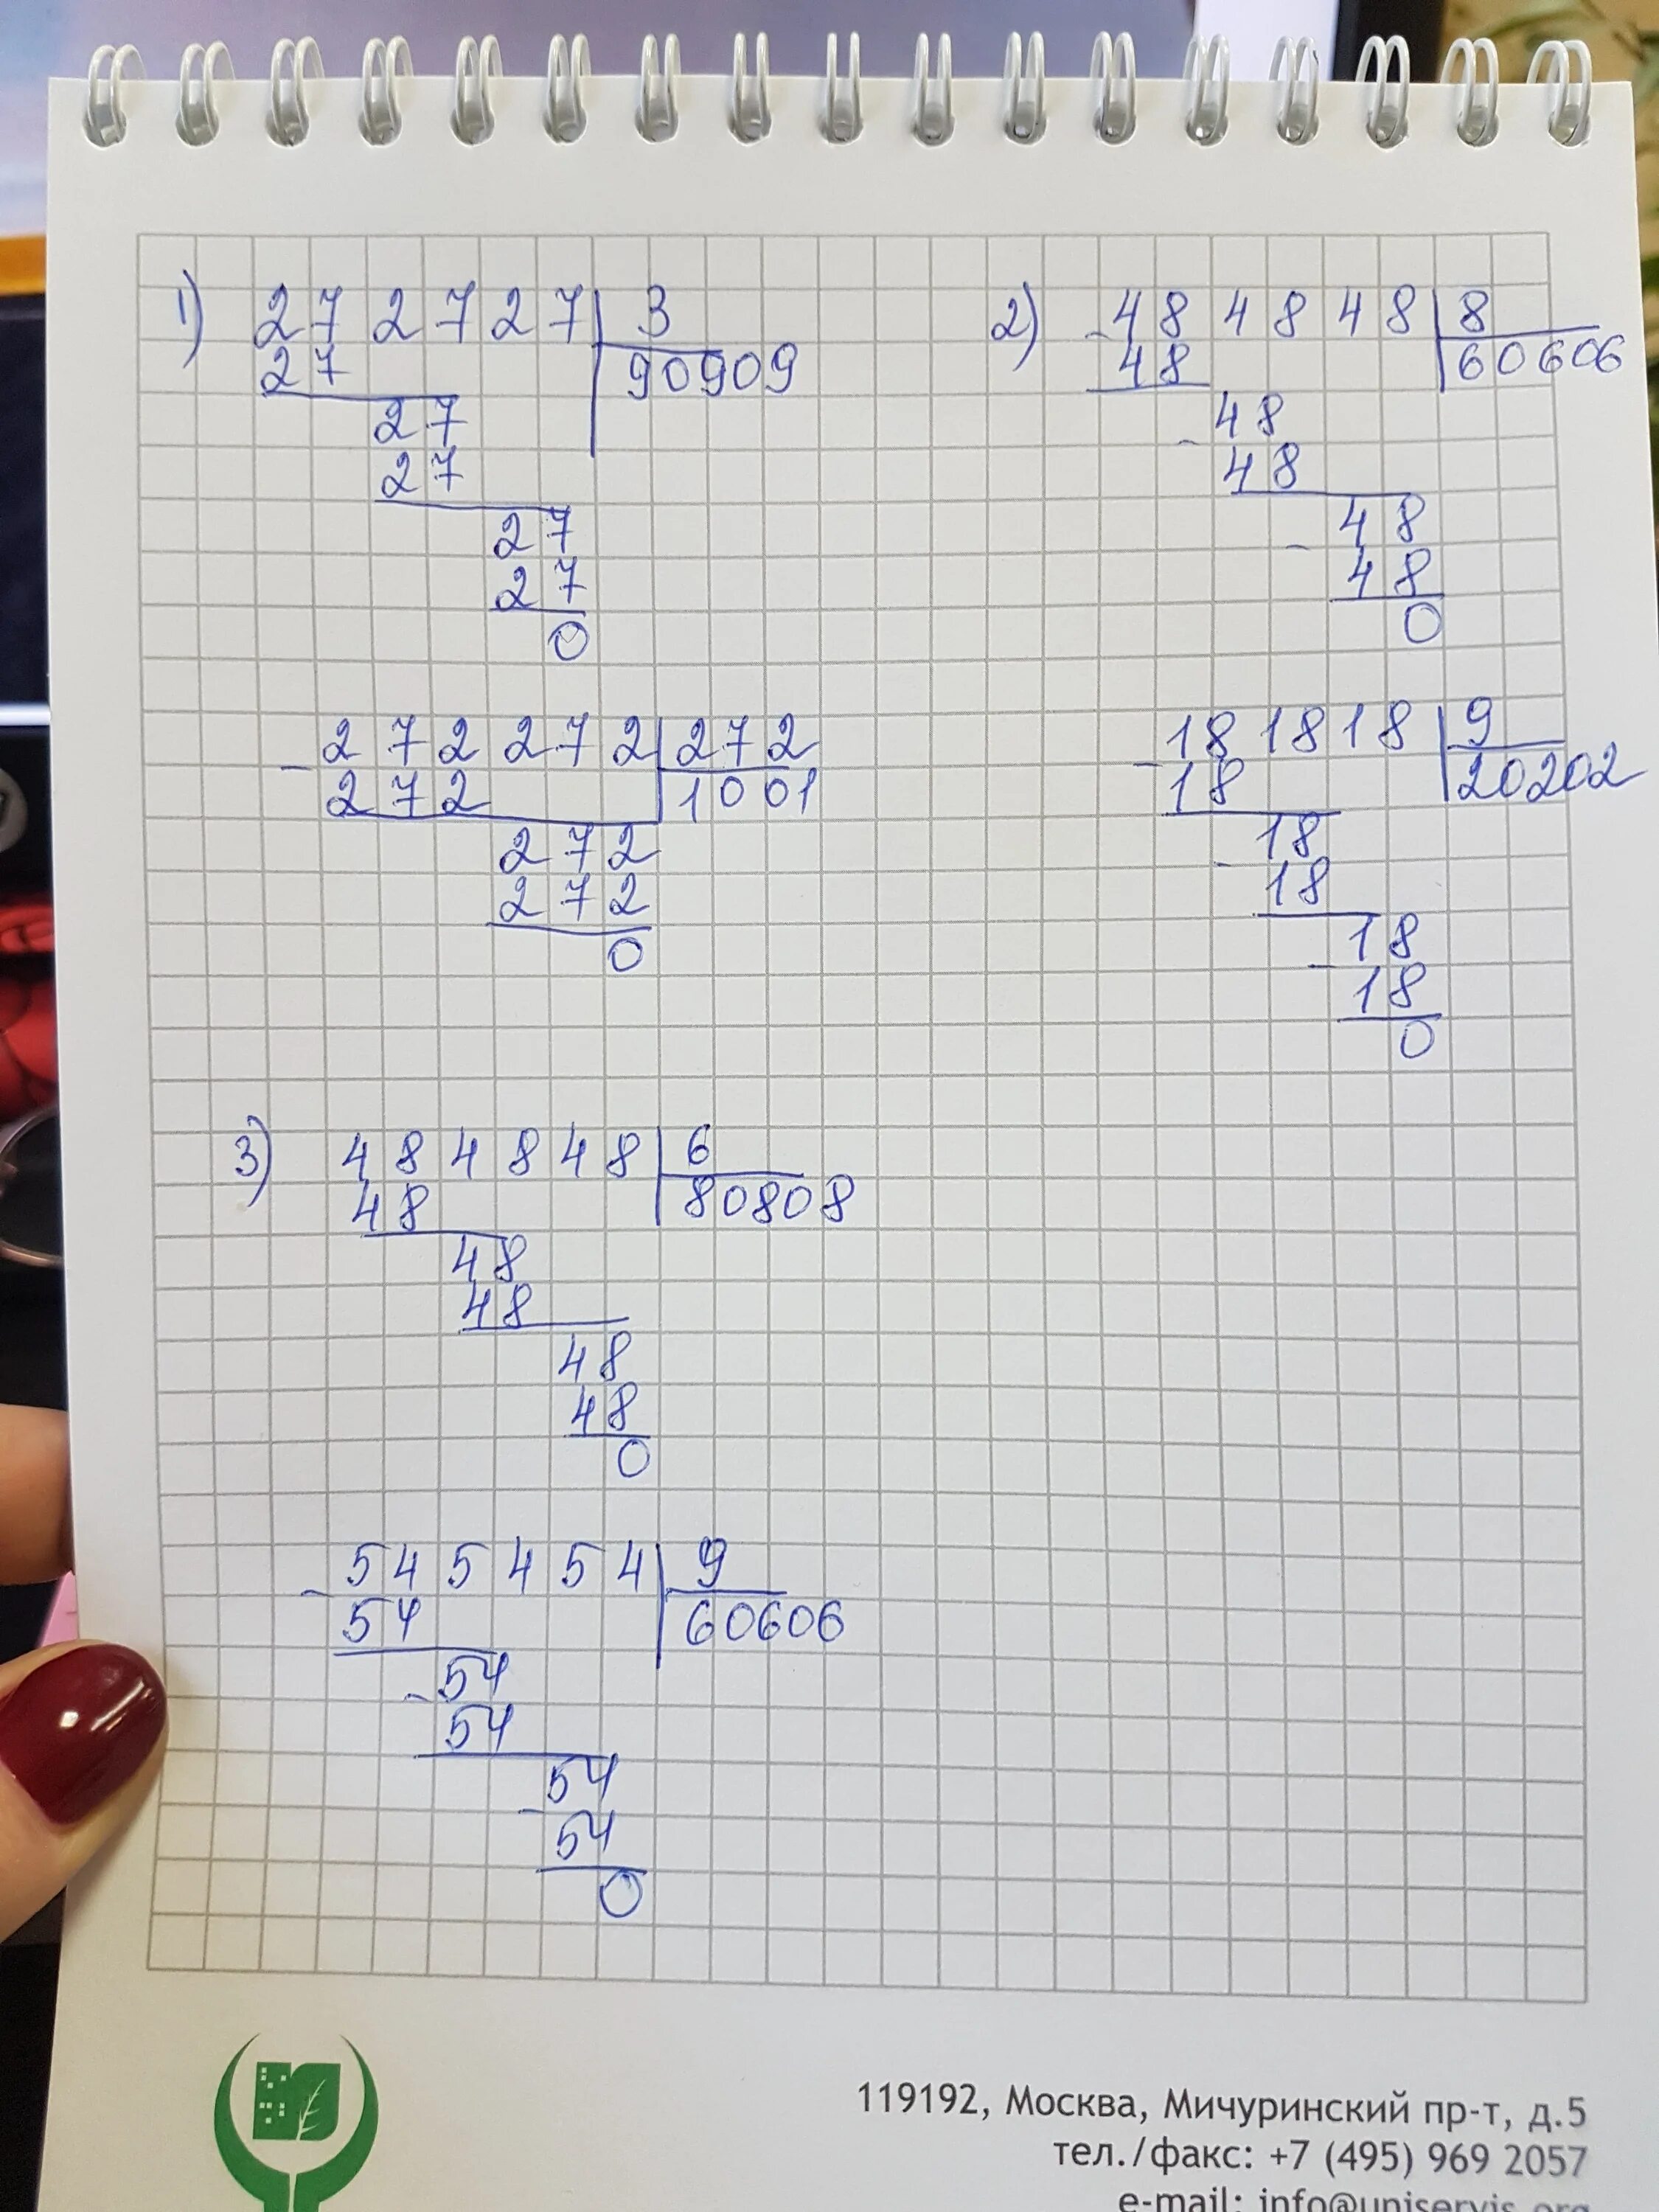 1) 272727 | 3
27 90909
27
27
27
27
0
272272 | 272
- 272 1001
272
272
0
2) - 484848 | 8
48 60606
- 48
48
- 48
48
0
- 181818 | 9
18 20202
- 18
18
- 18
18
0
3) 484848 | 6
48 80808
48
48
48
48
0
- 545454 | 9
54 60606
- 54
54
- 54
54
0
119192, Москва, Мичуринский пр-т, д.5
тел./факс: +7 (495) 969 2057
e-mail: info@uniservis.org